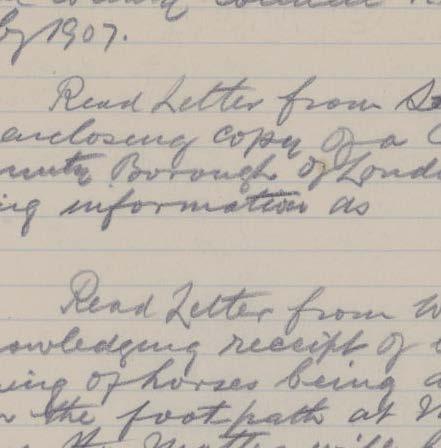 by 1907.
Read Letter from
enclosing copy of a C
unty Borough of Londo
ing information as
Read Letter from W
nowledging receipt of
ing of horses being d
the footpath at